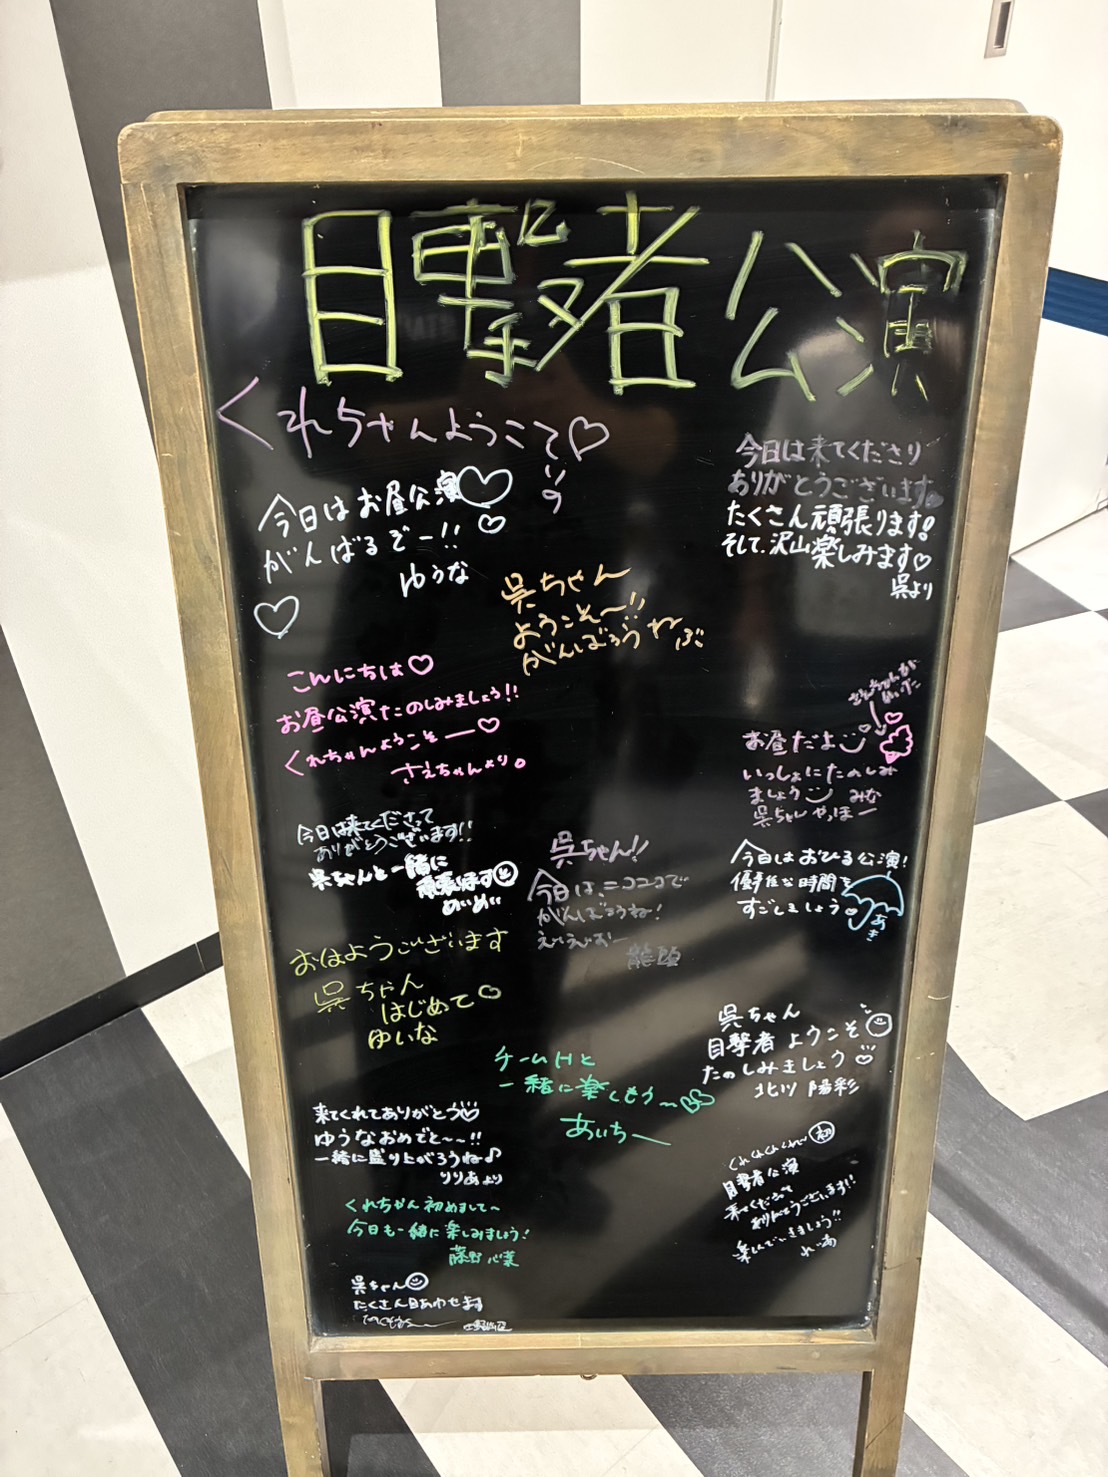 目撃者公演
くれちゃんようこそ♡
りの
今日はお昼公演♡
がんばるぞー!!♡
ゆうな
♡
今日は来てくださり
ありがとうございます
たくさん頑張ります!
そして、沢山楽しみます♡
呉より
呉ちゃん
ようこそ〜!!
がんばろうね
こんにちは♡
お昼公演たのしみましょう!!
くれちゃんようこそー♡
さえちゃんより。
お昼だよ
いっしょにたのしみ
ましょう みな
呉ちゃんやっほー
今日は来てくださって
ありがとうございます!!
呉ちゃんと一緒に
頑張ります
めいめい
呉ちゃん!!
今日は、ニコニコで
がんばろうね!
えいえいおー
龍頭
今日はおひる公演!
優雅な時間を
すごしましょう。
あき
おはようございます
呉ちゃん
はじめて♡
ゆいな
呉ちゃん
目撃者ようこそ
たのしみましょう♡
北川 陽彩
チームHと
一緒に楽しもう〜
あいちー
来てくれてありがとう♡
ゆうなおめでと〜〜!!
一緒に盛り上がろうね♪
りりあより
くれちゃん初めまして〜
今日も一緒に楽しみましょう!
藤野 心葉
くれくれくれ〜 初
目撃者公演
来てくださり
ありがとうございます!!
楽しんでいきましょう!!
れいあ
呉ちゃん
たくさん目あわせます